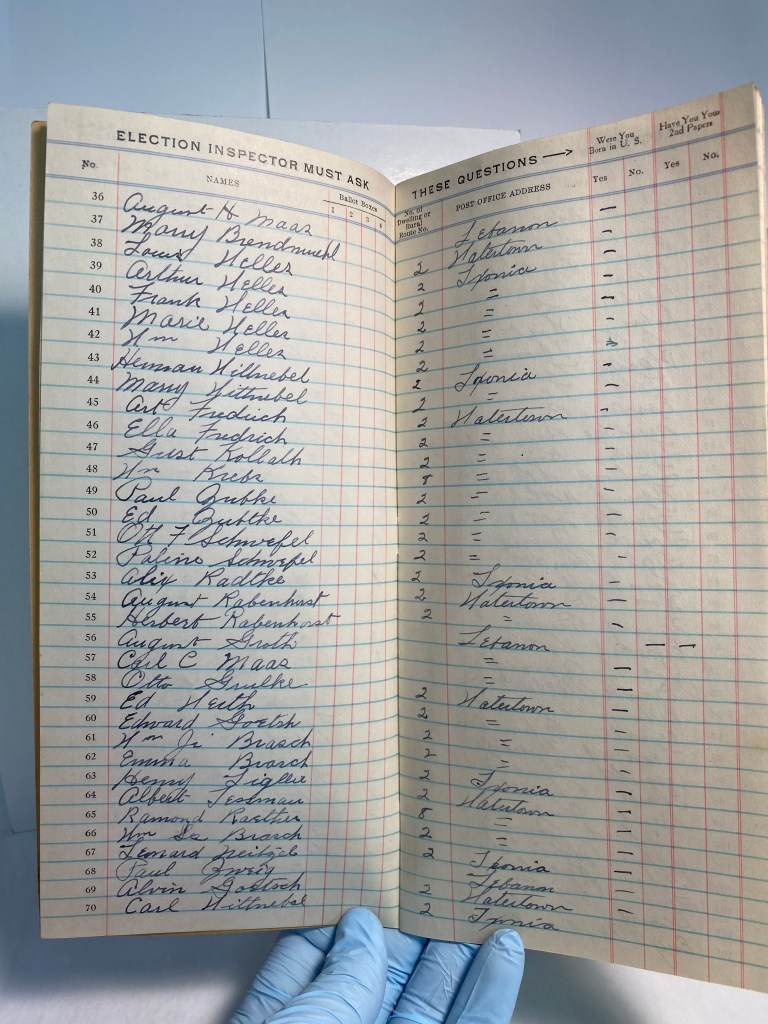 ELECTION INSPECTOR MUST ASK THESE QUESTIONS
No. NAMES Ballot Boxes 1 2 3 4 No. of Dwelling or Rural Route No. POST OFFICE ADDRESS Were You Born in U. S. Yes No. Have You Your 2nd Papers Yes No.
36 August H Maas Lebanon —
37 Mary Brendmuehl 2 Watertown —
38 Louis Heller 2 Ixonia —
39 Arthur Heller 2 = —
40 Frank Heller 2 = —
41 Marie Heller 2 = —
42 Wm Heller 2 =
43 Herman Wittnebel 2 Ixonia —
44 Mary Wittnebel 2 = —
45 Art Fredrich 2 Watertown —
46 Ella Fredrich 2 = —
47 Gust Kollath 2 = —
48 Wm Krebs 8 = —
49 Paul Zubke 2 = —
50 Ed Zubke 2 = —
51 Ott F Schwefel 2 = —
52 Schwefel 2 = —
53 Alix Radtke 2 Ixonia —
54 August Rabenhorst 2 Watertown —
55 Herbert Rabenhorst 2 = —
56 August Groth Lebanon — — —
57 Carl C Maas = —
58 Otto Grulke = —
59 Ed Heith 2 Watertown —
60 Edward Goetsh 2 = —
61 Wm Brasch 2 = —
62 Emma Brasch 2 = —
63 Henry 2 Ixonia —
64 Albert Tessman 2 Watertown —
65 Ramond Raether 8 = —
66 Wm Brasch 2 = —
67 Leonard 2 Ixonia —
68 Paul Zweig Lebanon —
69 Alvin Goetsch 2 Watertown —
70 Carl Wittnebel 2 Ixonia —